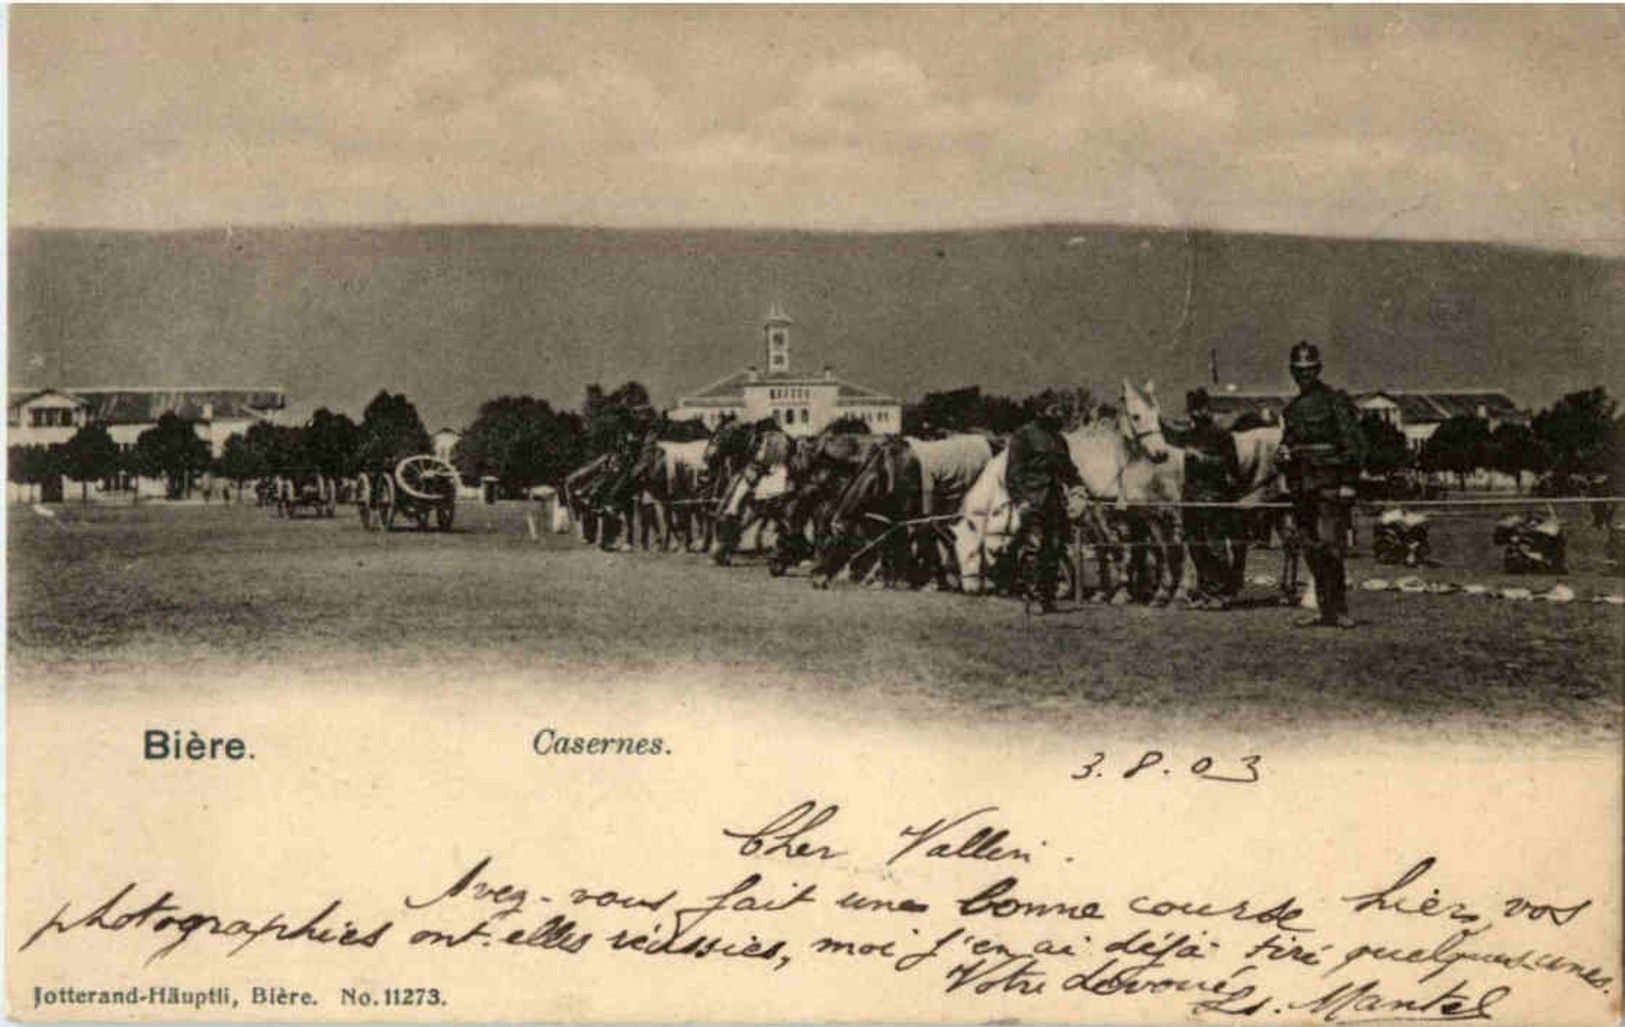 Bière.
Casernes.
3. 8. 03
Cher Vallin.
Avez-vous fait une bonne course hier, vos
photographies ont-elles réussies, moi j'en ai déjà tiré quelques-unes.
Votre dévoué
Ls. Mantel
Jotterand-Häuptli, Bière. No. 11273.